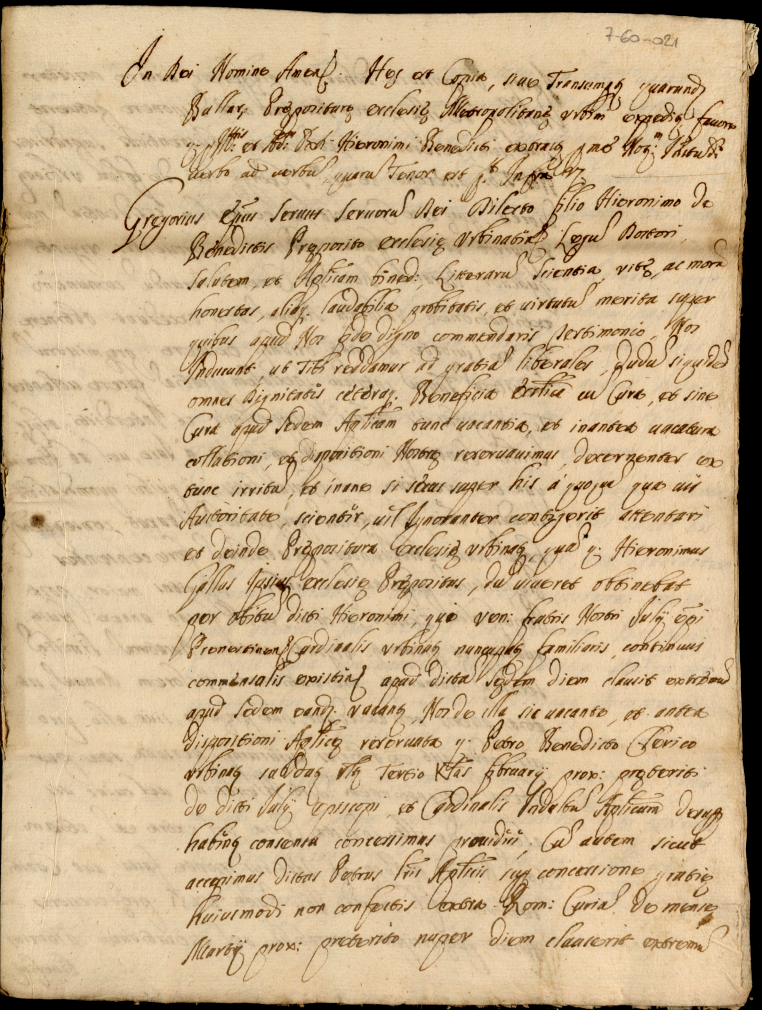 7-60-021
In Dei Nomine Amen. Hęc est Copia, sive Transumptũ quarund.
Bullar. Prępositurę ecclesię Metropolitanę Urbini expedit. favore
Ill: et Adm: D. Hieronimi Benedicti
verbo ad verbũ, quarũ Tenor est
Gregorius Ep̃us servus servorũ Dei Dilecto filio Hieronimo de
Benedictis Pręposito ecclesię Urbinatiñ, Legũ Doctori,
salutem, et Ap̃licam bened: Litterarũ scientia, vitę, ac morũ
honestas, aliaq. laudabilia probitatis, et virtutũ merita super
quibus apud Nos fide digno commendaris testimonio, Nos
Inducunt ut Tibi reddamur ad gratiã liberales, Dudũ siquidẽ
omnes dignitates cęteraq. Beneficia ecc̃lica cũ Cura, et sine
Cura apud sedem Ap̃licam tunc vacantia, et inantea vacatura
collationi, et dispositioni Nostrę reservavimus, decernentes ex
tunc irritũ, et inane si secus super his a quoquã quavis
Auctoritate, scienter, vel Ignoranter contigerit attentari
et deinde Prępositura ecclesię Urbinaten, quã q. Hieronimus
Gallus Ipsius ecclesię Prępositus, dũ viveret obtinebat
per obitũ dicti Hieronimi, qui ven: fratris Nostri Julij Ep̃i
Prenestinen Cardinalis Urbinaten nuncupati familiaris, continuus
commensalis existens apud dictã sedem diem clausit extremũ
apud sedem eand. vacante, Nos de illa sic vacante, et antea
dispositioni Ap̃licę reservata q. Petro Benedicto Clerico
Urbinaten tertio februarij prox: pręteriti
de dicti Julij episcopi, et Cardinalis Indultũ Ap̃licum desup.
habentis consensu concessimus provideri, Cũ autem sicut
accepimus dictus Petrus Litteris Ap̃licis sup. concessione gratię
huiusmodi non confectis extra Rom: Curiã de mense
Martij prox: preterito nuper diem clauserit extremũ